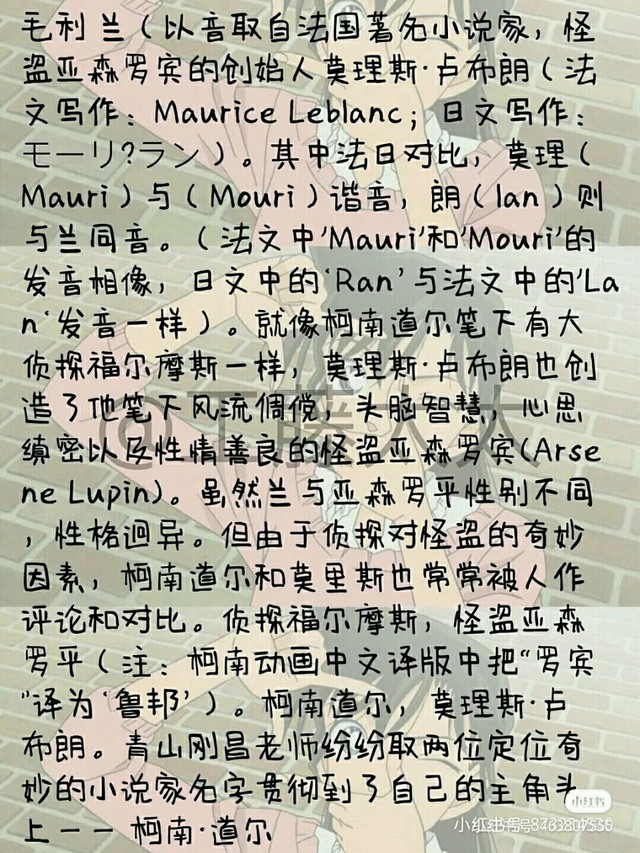 毛利兰（以音取自法国著名小说家，怪
盗亚森罗宾的创始人莫理斯·卢布朗（法
文写作：Maurice Leblanc；日文写作：
モーリ?ラン）。其中法日对比，莫理（
Mauri）与（Mouri）谐音，朗（lan）则
与兰同音。（法文中'Mauri'和'Mouri'的
发音相像，日文中的'Ran'与法文中的'La
n'发音一样）。就像柯南道尔笔下有大
侦探福尔摩斯一样，莫理斯·卢布朗也创
造了他笔下风流倜傥，头脑智慧，心思
缜密以及性情善良的怪盗亚森罗宾(Arse
ne Lupin)。虽然兰与亚森罗平性别不同
，性格迥异。但由于侦探对怪盗的奇妙
因素，柯南道尔和莫里斯也常常被人作
评论和对比。侦探福尔摩斯，怪盗亚森
罗平（注：柯南动画中文译版中把“罗宾
”译为‘鲁邦’）。柯南道尔，莫理斯·卢
布朗。青山刚昌老师纷纷取两位定位奇
妙的小说家名字贯彻到了自己的主角头
上－－柯南·道尔
@工藤太太
小红书